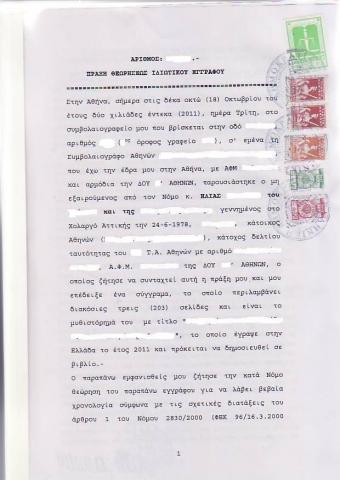 ΑΡΙΘΜΟΣ: .-
ΠΡΑΞΗ ΘΕΩΡΗΣΕΩΣ ΙΔΙΩΤΙΚΟΥ ΕΓΓΡΑΦΟΥ
Στην Αθήνα, σήμερα στις δέκα οκτώ (18) Οκτωβρίου του
έτους δύο χιλιάδες έντεκα (2011), ημέρα Τρίτη, στο
συμβολαιογραφείο μου που βρίσκεται στην οδό
αριθμός ( ος όροφος γραφείο ), σ' εμένα τη
Συμβολαιογράφο Αθηνών
που έχω την έδρα μου στην Αθήνα, με ΑΦΜ
και αρμόδια την ΔΟΥ ' ΑΘΗΝΩΝ, παρουσιάστηκε ο μη
εξαιρούμενος από τον Νόμο κ. ΗΛΙΑΣ του
και της , γεννημένος στο
Χολαργό Αττικής την 24-6-1978, , κάτοικος
Αθηνών ( ), κάτοχος δελτίου
ταυτότητας του Τ.Α. Αθηνών με αριθμό
, Α.Φ.Μ. της ΔΟΥ ' ΑΘΗΝΩΝ, ο
οποίος ζήτησε να συνταχτεί αυτή η πράξη μου και μου
επέδειξε ένα σύγγραμα, το οποίο περιλαμβάνει
διακόσιες τρεις (203) σελίδες και είναι το
μυθιστόρημά του με τίτλο "
", το οποίο έγραψε στην
Ελλάδα το έτος 2011 και πρόκειται να δημοσιευθεί σε
βιβλίο.-
Ο παραπάνω εμφανισθείς μου ζήτησε την κατά Νόμο
θεώρηση του παραπάνω εγγράφου για να λάβει βεβαία
χρονολογία σύμφωνα με τις σχετικές διατάξεις του
άρθρου 1 του Νόμου 2830/2000 (ΦΕΚ 96/16.3.2000
1